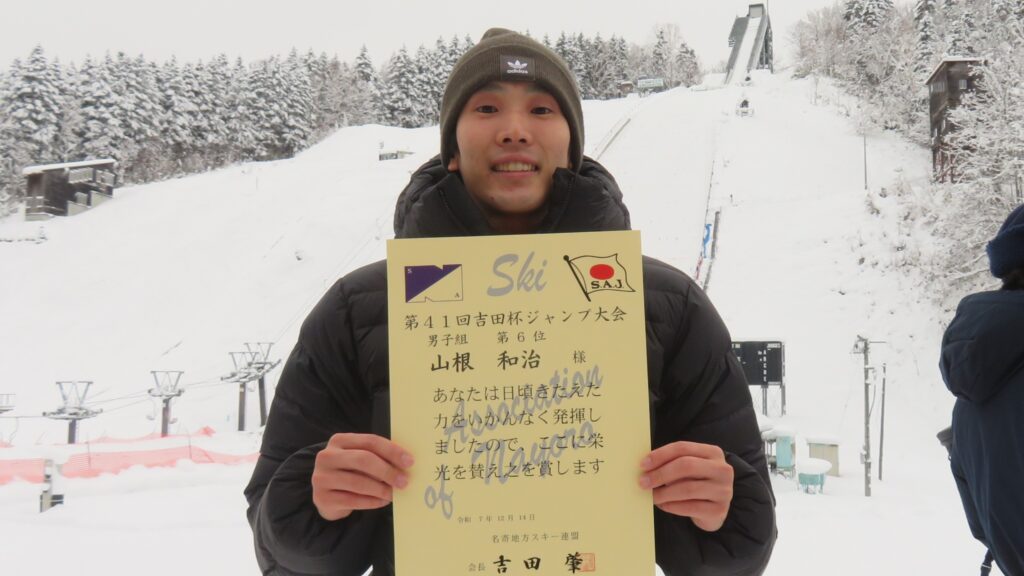 adidas
S
A
Ski
S.A.J
第41回吉田杯ジャンプ大会
男子組 第6位
山根 和治 様
あなたは日頃きたえた
力をいかんなく発揮し
ましたので、ここに栄
光を賛え之を賞します
Association
of Nayoro
令和 7年 12月 14日
名寄地方スキー連盟
会長 吉田 肇